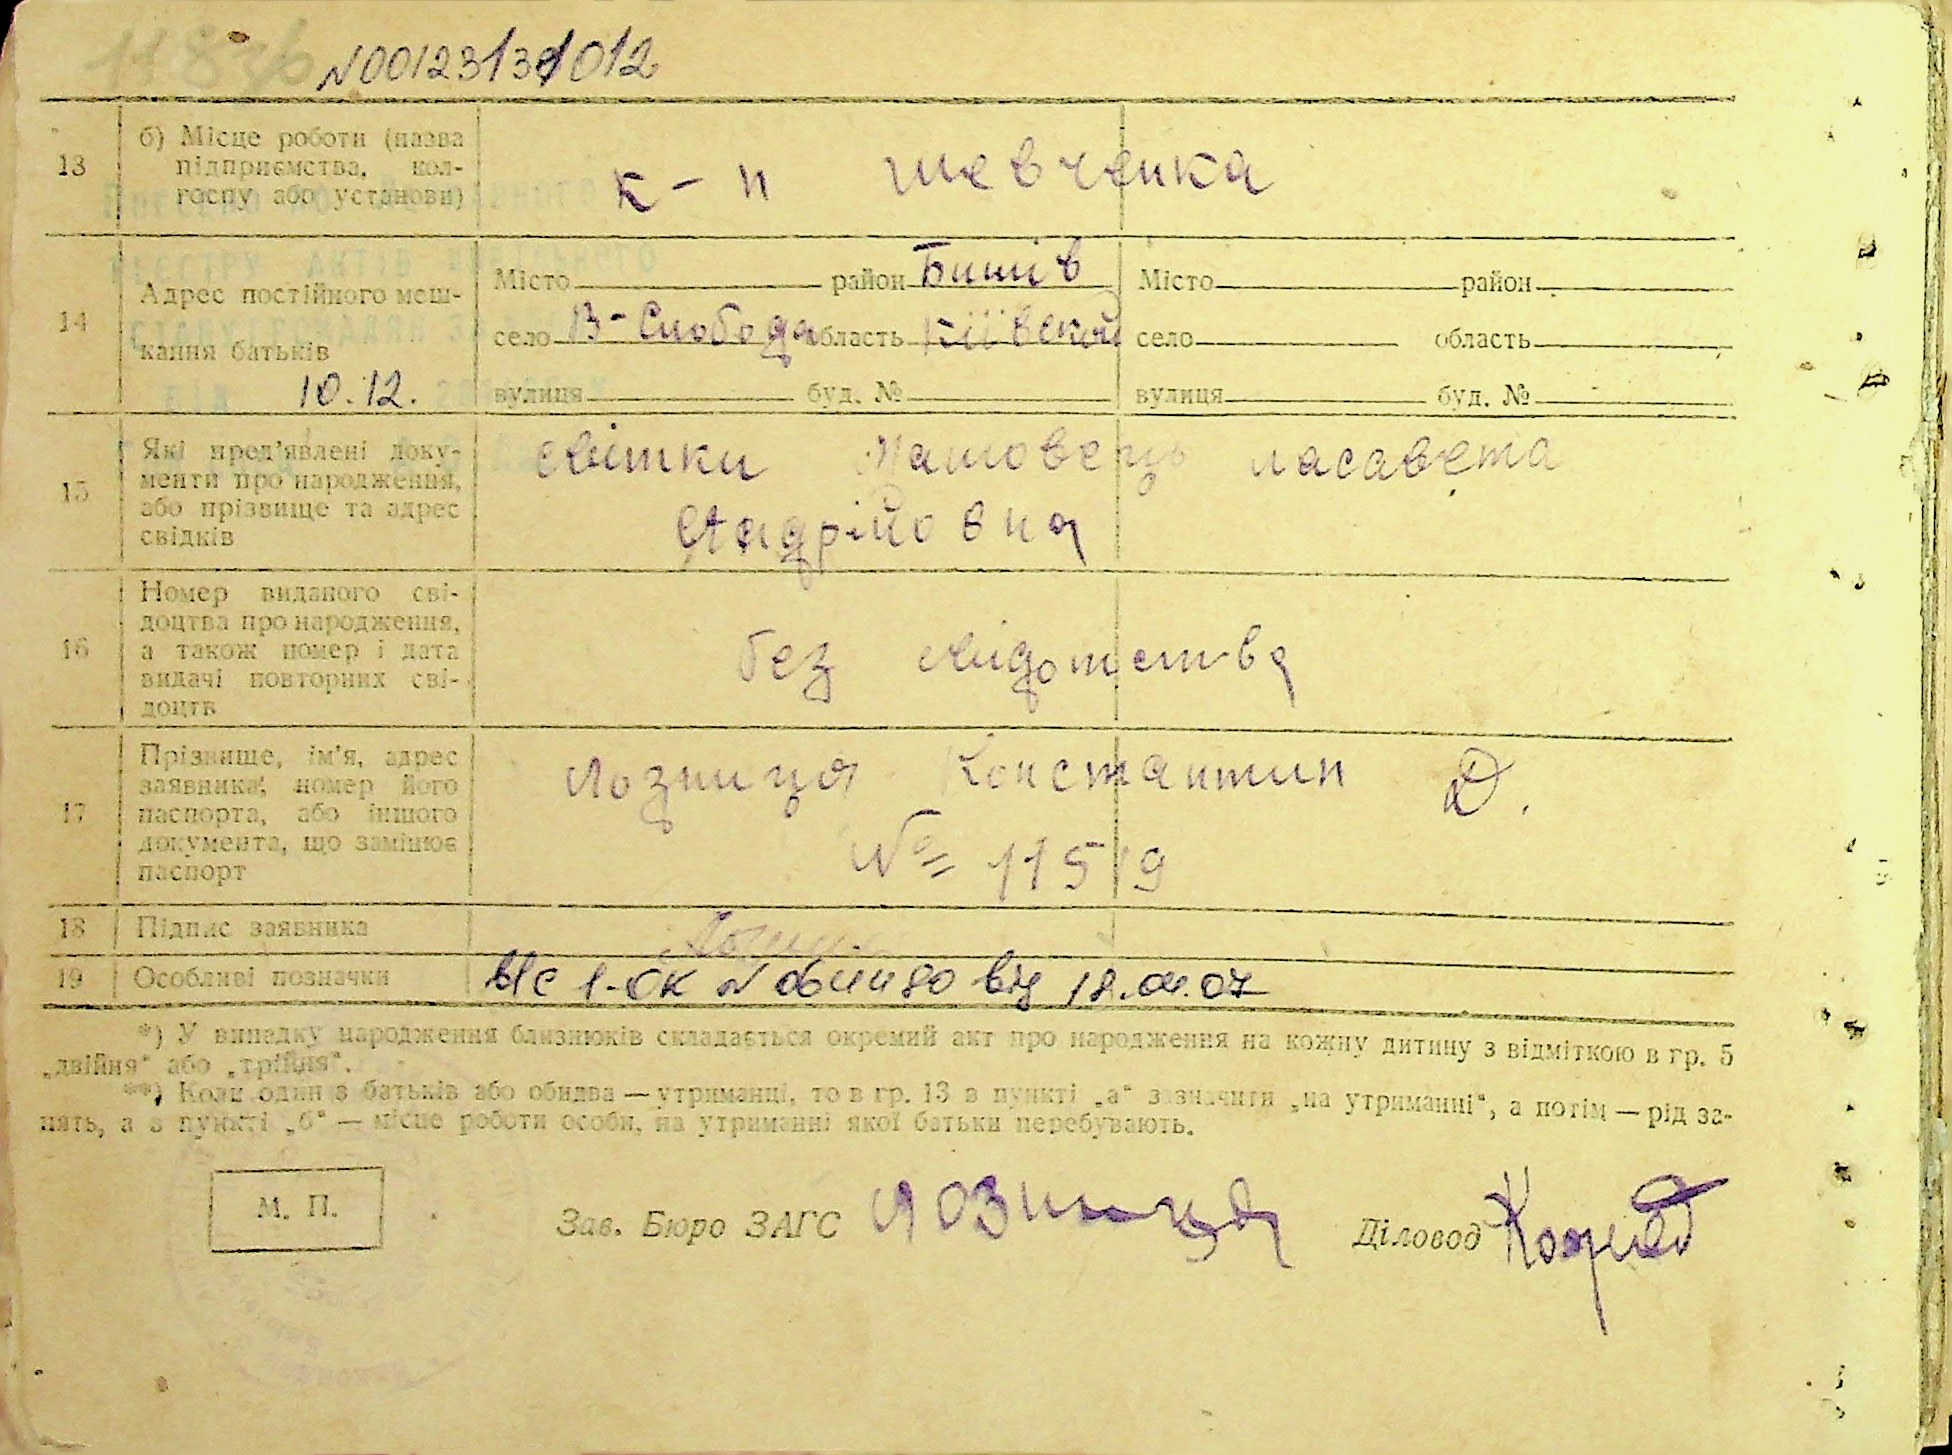 N00123131012
13 б) Місце роботи (назва
підприємства, кол-
госпу або установи)
к-п шевченка
14 Адрес постійного меш-
кання батьків
10.12.
Місто район Бишів
село В-Слобода область Київской
вулиця буд. №
Місто район
село область
вулиця буд. №
15 Які пред'явлені доку-
менти про народження,
або прізвище та адрес
свідків
світки ласавета
16 Номер виданого сві-
доцтва про народження,
а також номер і дата
видачі повторних сві-
доцтв
без свидотства
17 Прізвище, ім'я, адрес
заявника, номер його
паспорта, або іншого
документа, що замінює
паспорт
Лозниця Константин Д.
№ 11519
18 Підпис заявника
19 Особливі позначки
від
*) У випадку народження близнюків складається окремий акт про народження на кожну дитину з відміткою в гр. 5
„двійня“ або „трійня“.
**) Коли один з батьків або обидва — утриманці, то в гр. 13 в пункті „а“ зазначити „на утриманні“, а потім — рід за-
нять, а в пункті „б“ — місце роботи особи, на утриманні якої батьки перебувають.
М. П.
Зав. Бюро ЗАГС Лозниця
Діловод